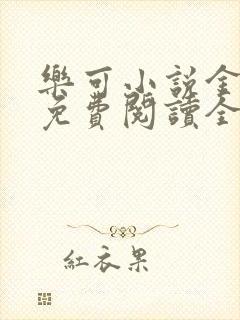 樂可小説全
免費閱讀全
紅衣果